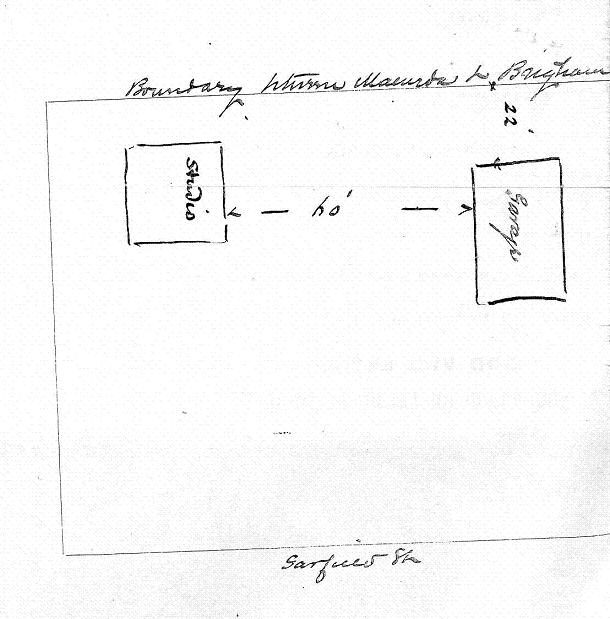 Boundary between Macurda & Brigham
22'
Studio
40'
Garage
Garfield St